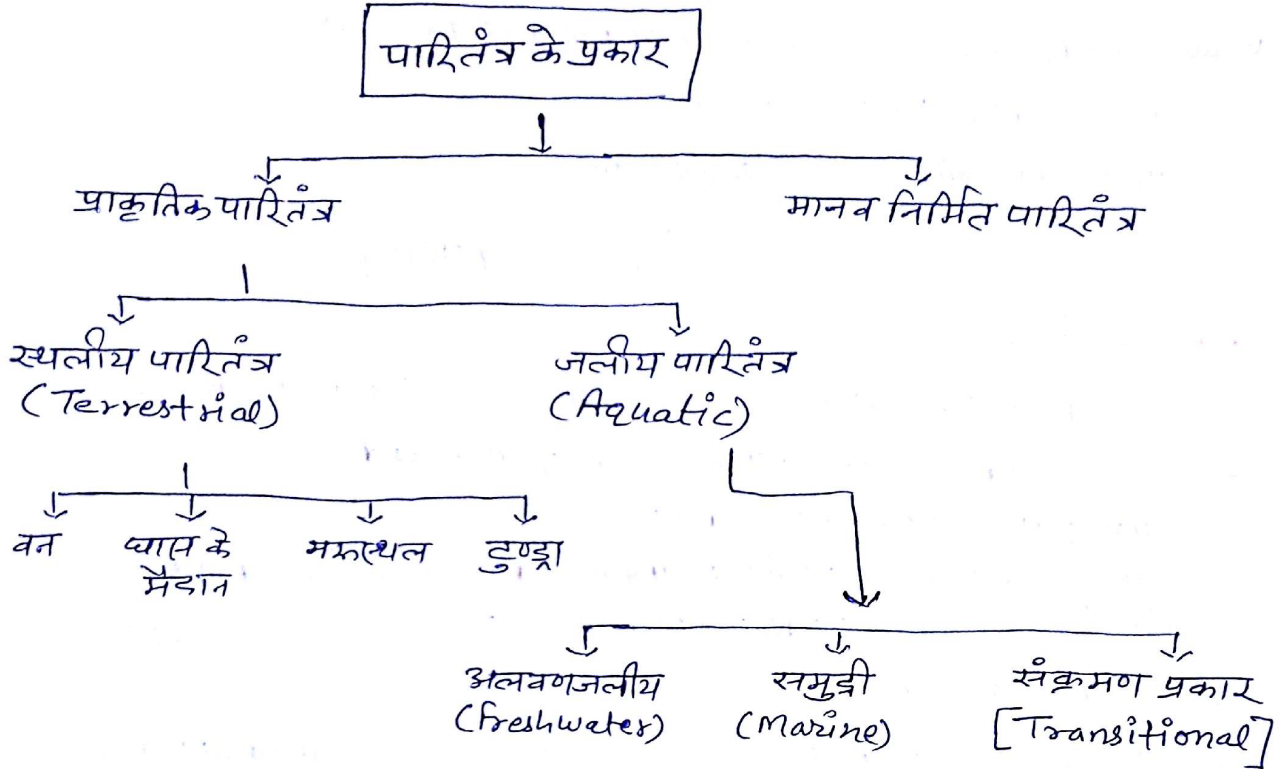 पारितंत्र के प्रकार
प्राकृतिक पारितंत्र
मानव निर्मित पारितंत्र
स्थलीय पारितंत्र
(Terrestrial)
जलीय पारितंत्र
(Aquatic)
वन
घास के
मैदान
मरूस्थल
टुण्ड्रा
अलवणजलीय
(freshwater)
समुद्री
(Marine)
संक्रमण प्रकार
[Transitional]